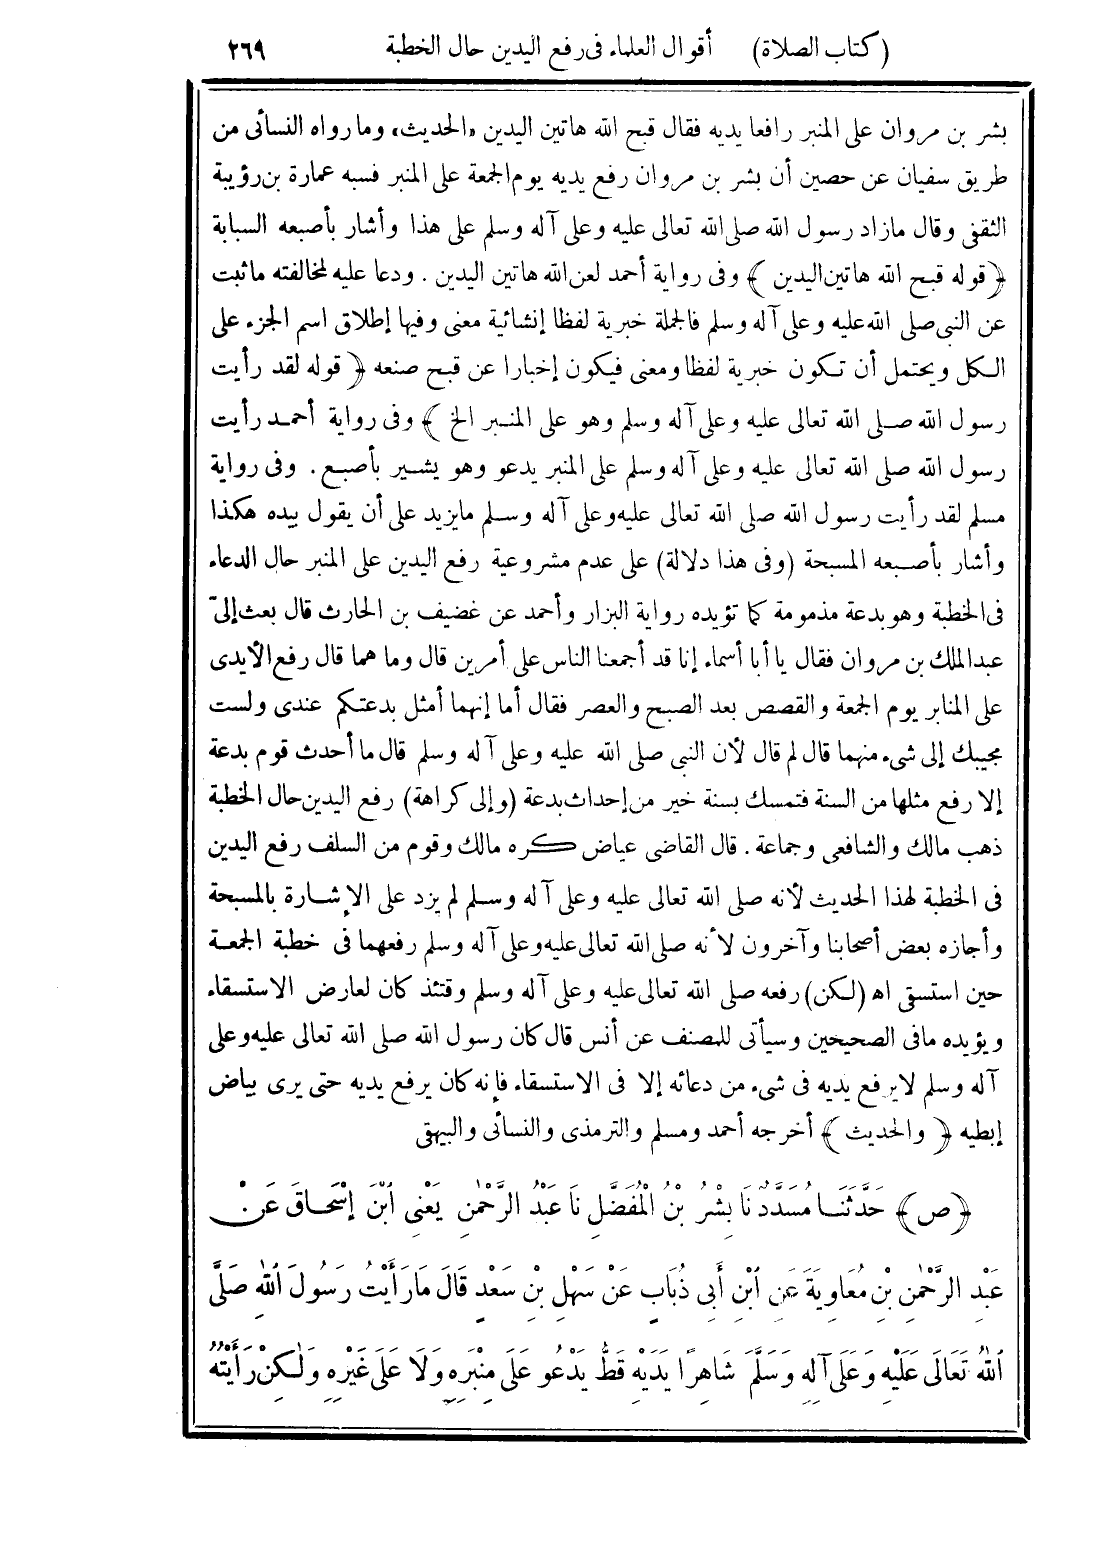 (كتاب الصلاة) أقوال العلماء فى رفع اليدين حال الخطبة ٢٦٩
بشر بن مروان على المنبر رافعا يديه فقال قبح الله هاتين اليدين «الحديث» وما رواه النسائى من
طريق سفيان عن حصين أن بشر بن مروان رفع يديه يوم الجمعة على المنبر فسبه عمارة بن رؤيبة
الثقفى وقال مازاد رسول الله صلى الله تعالى عليه وعلى آله وسلم على هذا وأشار بأصبعه السبابة
﴿قوله قبح الله هاتين اليدين﴾ وفى رواية أحمد لعن الله هاتين اليدين . ودعا عليه لمخالفته ماثبت
عن النبى صلى الله عليه وعلى آله وسلم فالجملة خبرية لفظا إنشائية معنى وفيها إطلاق اسم الجزء على
الكل ويحتمل أن تكون خبرية لفظا ومعنى فيكون إخبارا عن قبح صنعه ﴿قوله لقد رأيت
رسول الله صلى الله تعالى عليه وعلى آله وسلم وهو على المنبر الخ﴾ وفى رواية أحمد رأيت
رسول الله صلى الله تعالى عليه وعلى آله وسلم على المنبر يدعو وهو يشير بأصبع . وفى رواية
مسلم لقد رأيت رسول الله صلى الله تعالى عليه وعلى آله وسلم مايزيد على أن يقول بيده هكذا
وأشار بأصبعه المسبحة (وفى هذا دلالة) على عدم مشروعية رفع اليدين على المنبر حال الدعاء
فى الخطبة وهو بدعة مذمومة كما تؤيده رواية البزار وأحمد عن غضيف بن الحارث قال بعث إلىّ
عبد الملك بن مروان فقال يا أبا أسماء إنا قد أجمعنا الناس على أمرين قال وما هما قال رفع الأيدى
على المنابر يوم الجمعة والقصص بعد الصبح والعصر فقال أما إنهما أمثل بدعتكم عندى ولست
مجيبك إلى شىء منهما قال لم قال لأن النبى صلى الله عليه وعلى آله وسلم قال ما أحدث قوم بدعة
إلا رفع مثلها من السنة فتمسك بسنة خير من إحداث بدعة (وإلى كراهة) رفع اليدين حال الخطبة
ذهب مالك والشافعى وجماعة . قال القاضى عياض كره مالك وقوم من السلف رفع اليدين
فى الخطبة لهذا الحديث لأنه صلى الله تعالى عليه وعلى آله وسلم لم يزد على الإشارة بالمسبحة
وأجازه بعض أصحابنا وآخرون لأنه صلى الله تعالى عليه وعلى آله وسلم رفعهما فى خطبة الجمعة
حين استسقى اه (لكن) رفعه صلى الله تعالى عليه وعلى آله وسلم وقتئذ كان لعارض الاستسقاء
ويؤيده مافى الصحيحين وسيأتى للمصنف عن أنس قال كان رسول الله صلى الله تعالى عليه وعلى
آله وسلم لايرفع يديه فى شىء من دعائه إلا فى الاستسقاء فإنه كان يرفع يديه حتى يرى بياض
إبطيه ﴿والحديث﴾ أخرجه أحمد ومسلم والترمذى والنسائى والبيهقى
﴿ص﴾ حَدَّثَنَا مُسَدَّدٌ نَا بِشْرُ بْنُ الْمُفَضَّلِ نَا عَبْدُ الرَّحْمٰنِ يَعْنِى ابْنَ إِسْحَاقَ عَنْ
عَبْدِ الرَّحْمٰنِ بْنِ مُعَاوِيَةَ عَنِ ابْنِ أَبِى ذُبَابٍ عَنْ سَهْلِ بْنِ سَعْدٍ قَالَ مَارَأَيْتُ رَسُولَ اللهِ صَلَّى
اللهُ تَعَالَى عَلَيْهِ وَعَلَى آلِهِ وَسَلَّمَ شَاهِرًا يَدَيْهِ قَطُّ يَدْعُو عَلَى مِنْبَرِهِ وَلَا عَلَى غَيْرِهِ وَلٰكِنْ رَأَيْتُهُ